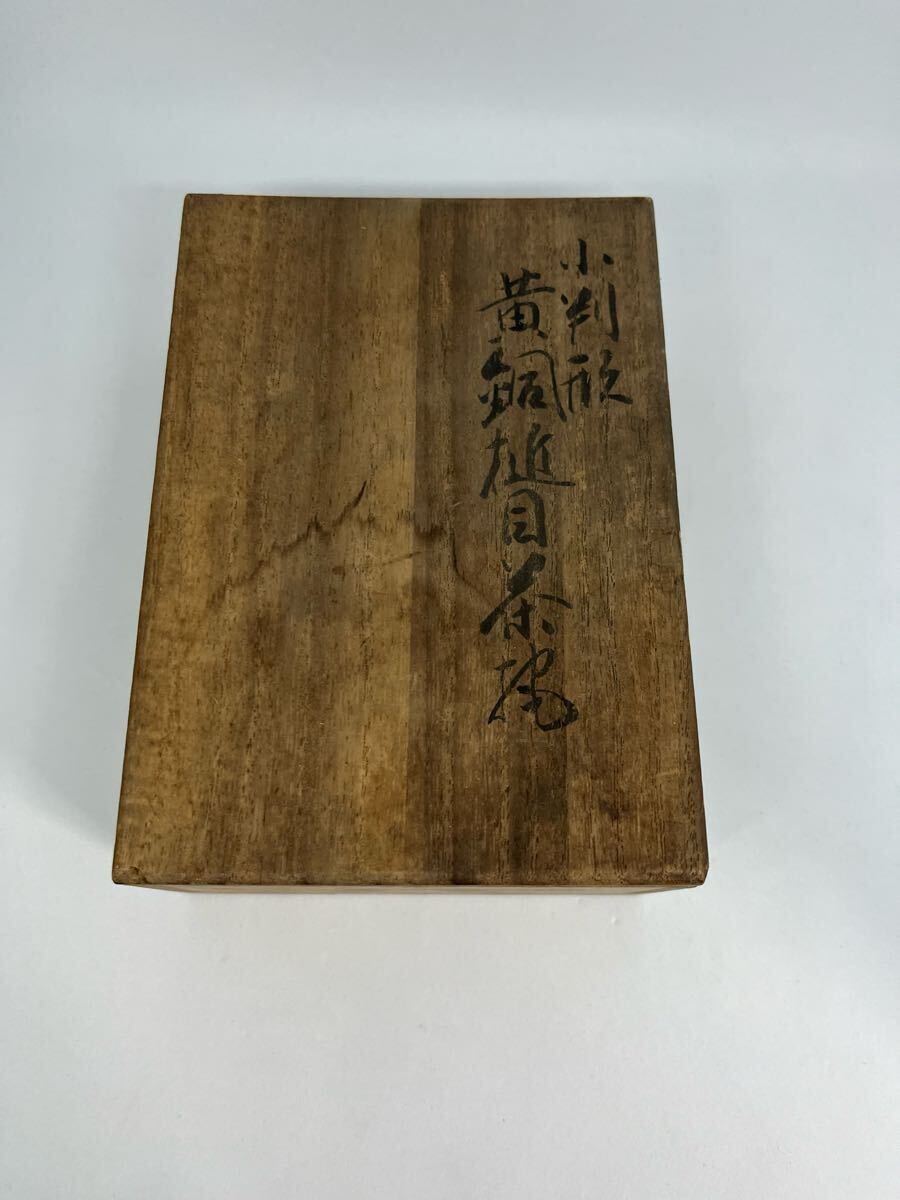 小判形
黄銅槌目茶托